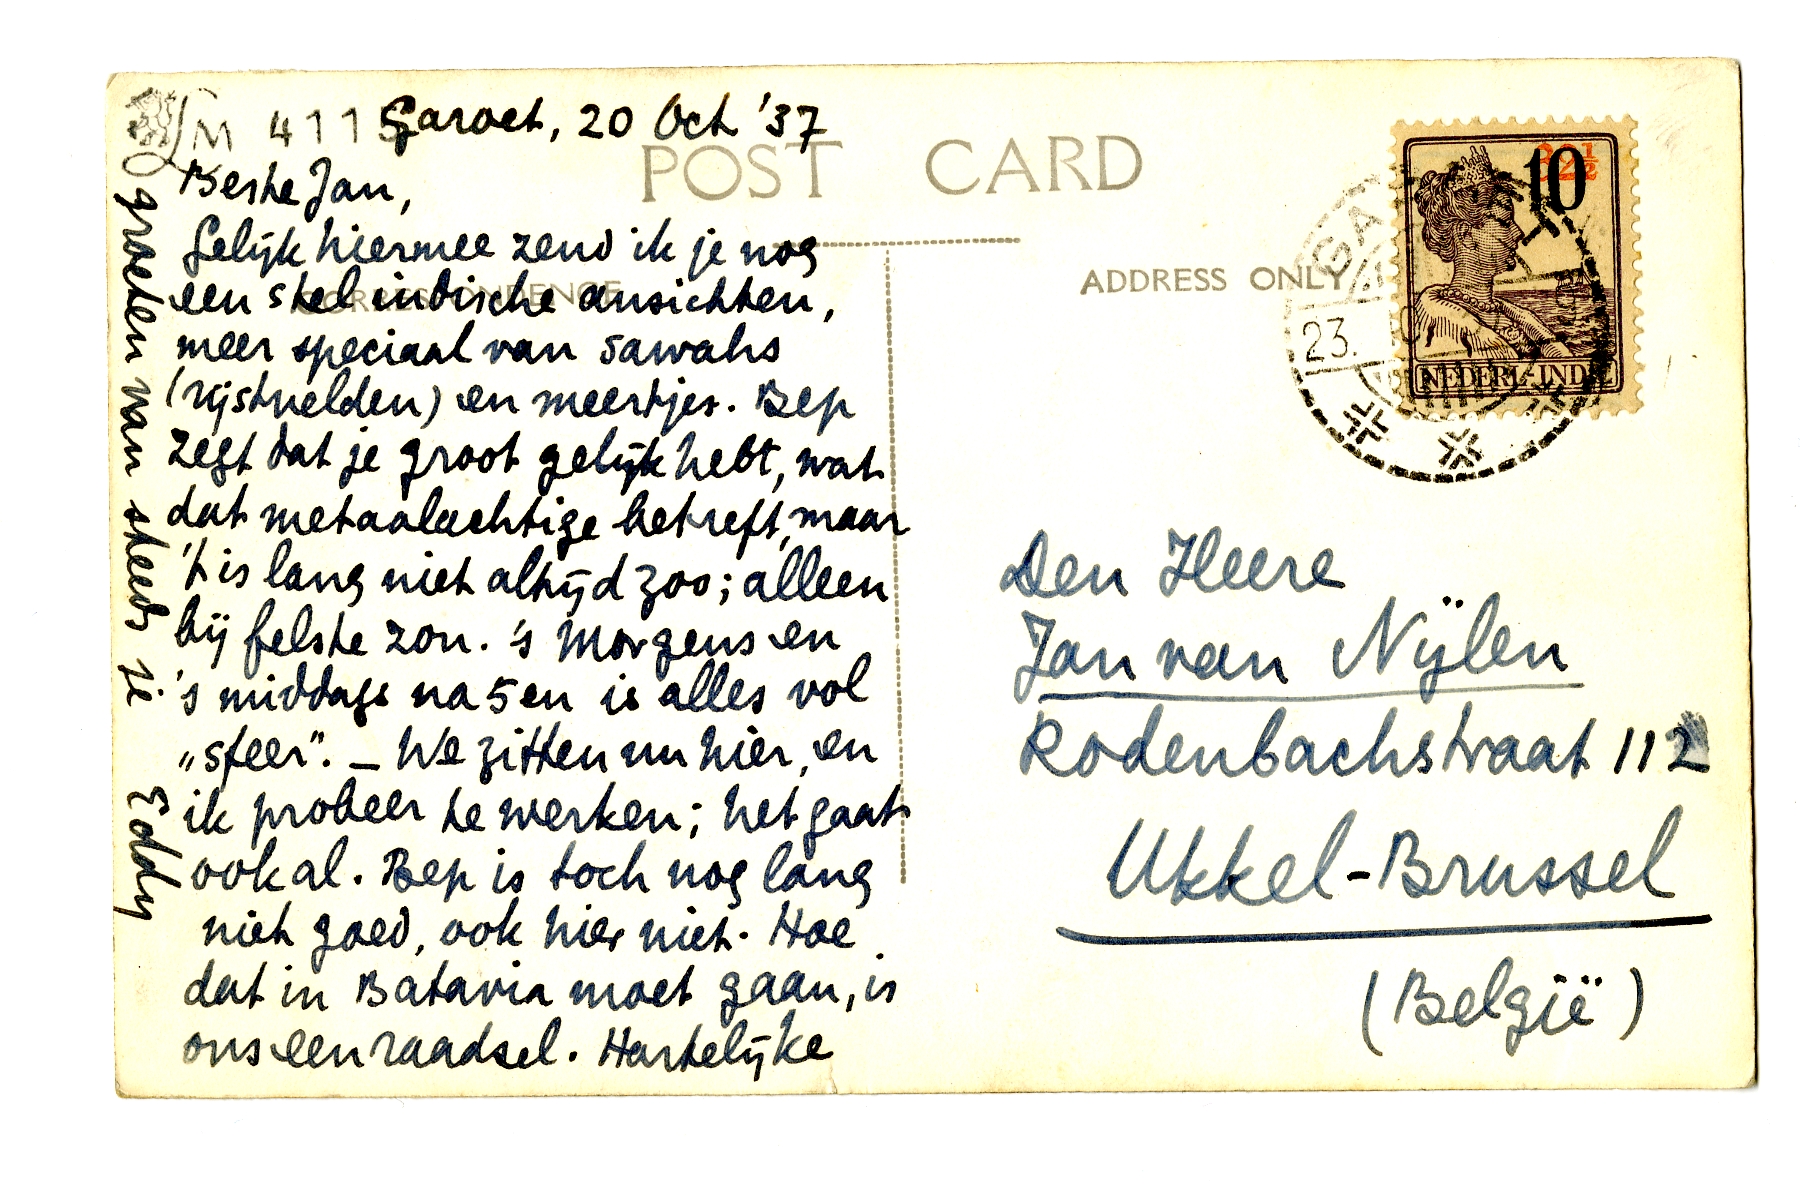 M 411
Garoet, 20 Oct '37
POST CARD
Beste Jan,
Gelijk hiermee zend ik je nog
een stel indische ansichten,
CORRESPONDENCE
meer speciaal van sawahs
(rijstvelden) en meertjes. Bep
zegt dat je groot gelijk hebt, wat
dat metaalachtige betreft, maar
't is lang niet altijd zoo; alleen
bij felste zon. 's Morgens en
's middags na 5en is alles vol
„sfeer". – We zitten nu hier, en
ik probeer te werken; het gaat
ook al. Bep is toch nog lang
niet goed, ook hier niet. Hoe
dat in Batavia moet gaan, is
ons een raadsel. Hartelijke
groeten van steeds je
Eddy
ADDRESS ONLY
32½
10
NEDERL-INDIE
GA
23.
Den Heere
Jan van Nÿlen
Rodenbachstraat 112
Ukkel-Brussel
(België)